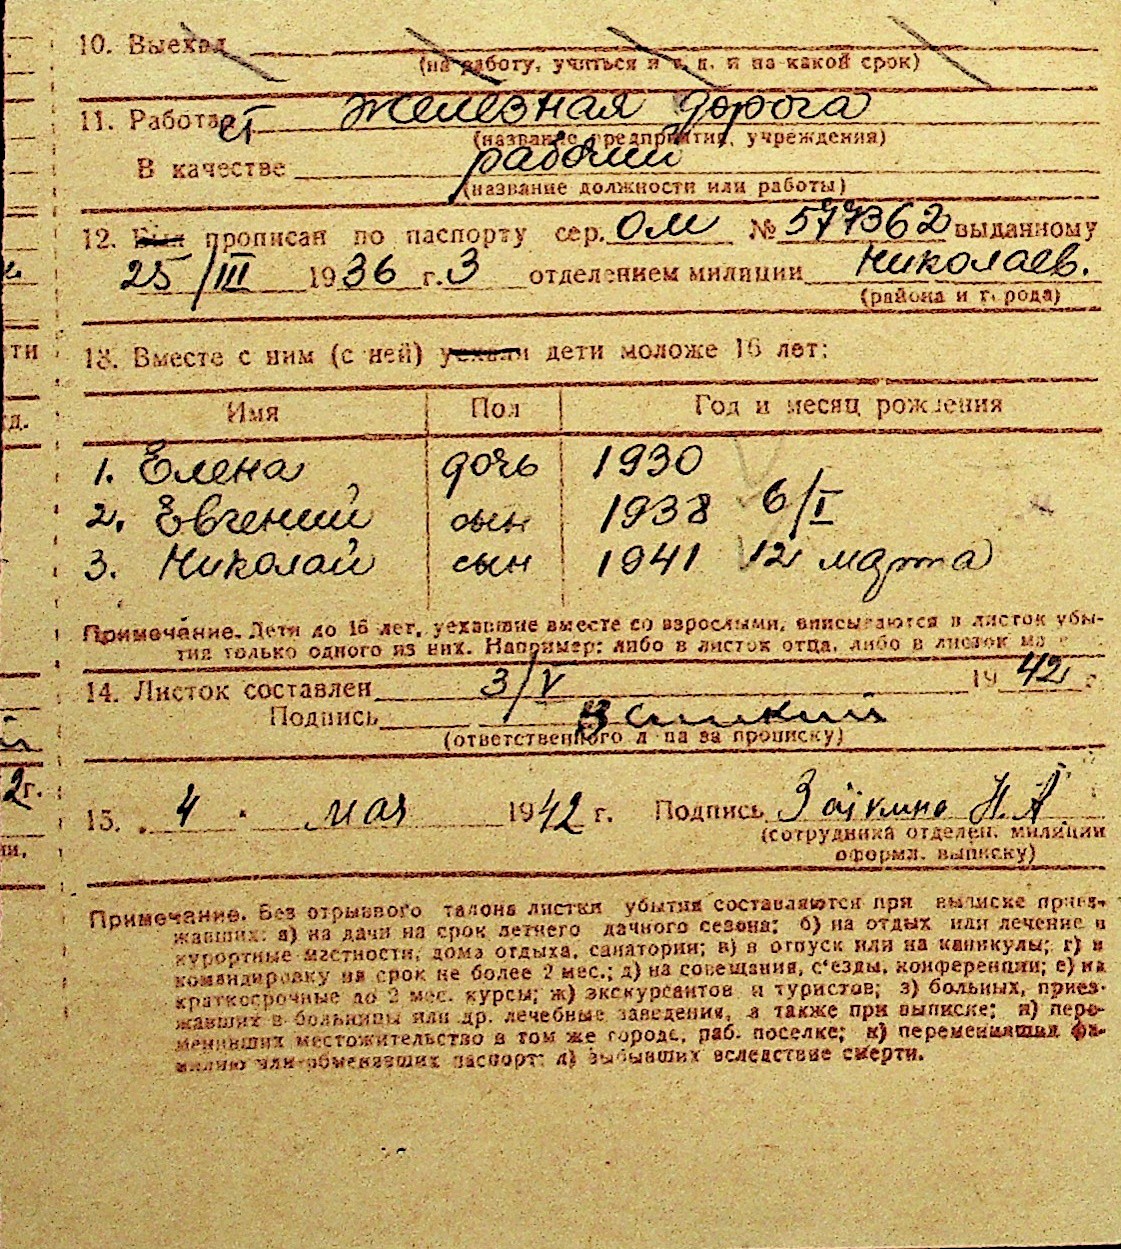 10. Выехал
(на работу, учиться и т. п. и на какой срок)
11. Работает железная дорога
(название предприятия, учреждения)
В качестве рабочий
(название должности или работы)
12. Был прописан по паспорту сер. ОМ № 577362 выданному
25/III 1936 г. 3 отделением милиции Николаев.
(района и города)
13. Вместе с ним (с ней) уехали дети моложе 16 лет:
Имя Пол Год и месяц рождения
1. Елена дочь 1930
2. Евгений сын 1938 6/I
3. Николай сын 1941 12 марта
Примечание. Дети до 16 лет, уехавшие вместе со взрослыми, вписываются в листок убы-
тия только одного из них. Например: либо в листок отца, либо в листок
14. Листок составлен 3/V 1942 г.
Подпись
(ответственного л на за прописку)
15. 4 мая 1942 г. Подпись
(сотрудника отделен. милиции
оформл. выписку)
Примечание. Без отрывного талона листки убытия составляются при выписке приез-
жавших: а) на дачи на срок летнего дачного сезона; б) на отдых или лечение в
курортные местности, дома отдыха, санатории; в) в отпуск или на каникулы; г) в
командировку на срок не более 2 мес.; д) на совещания, с'езды, конференции; е) на
краткосрочные до 2 мес. курсы; ж) экскурсантов и туристов; з) больных, приез-
жавших в больницы или др. лечебные заведения, а также при выписке; и) пере-
менивших местожительство в том же городе, раб. поселке; к) переменивших фа-
милию или обменявших паспорт; л) выбывших вследствие смерти.